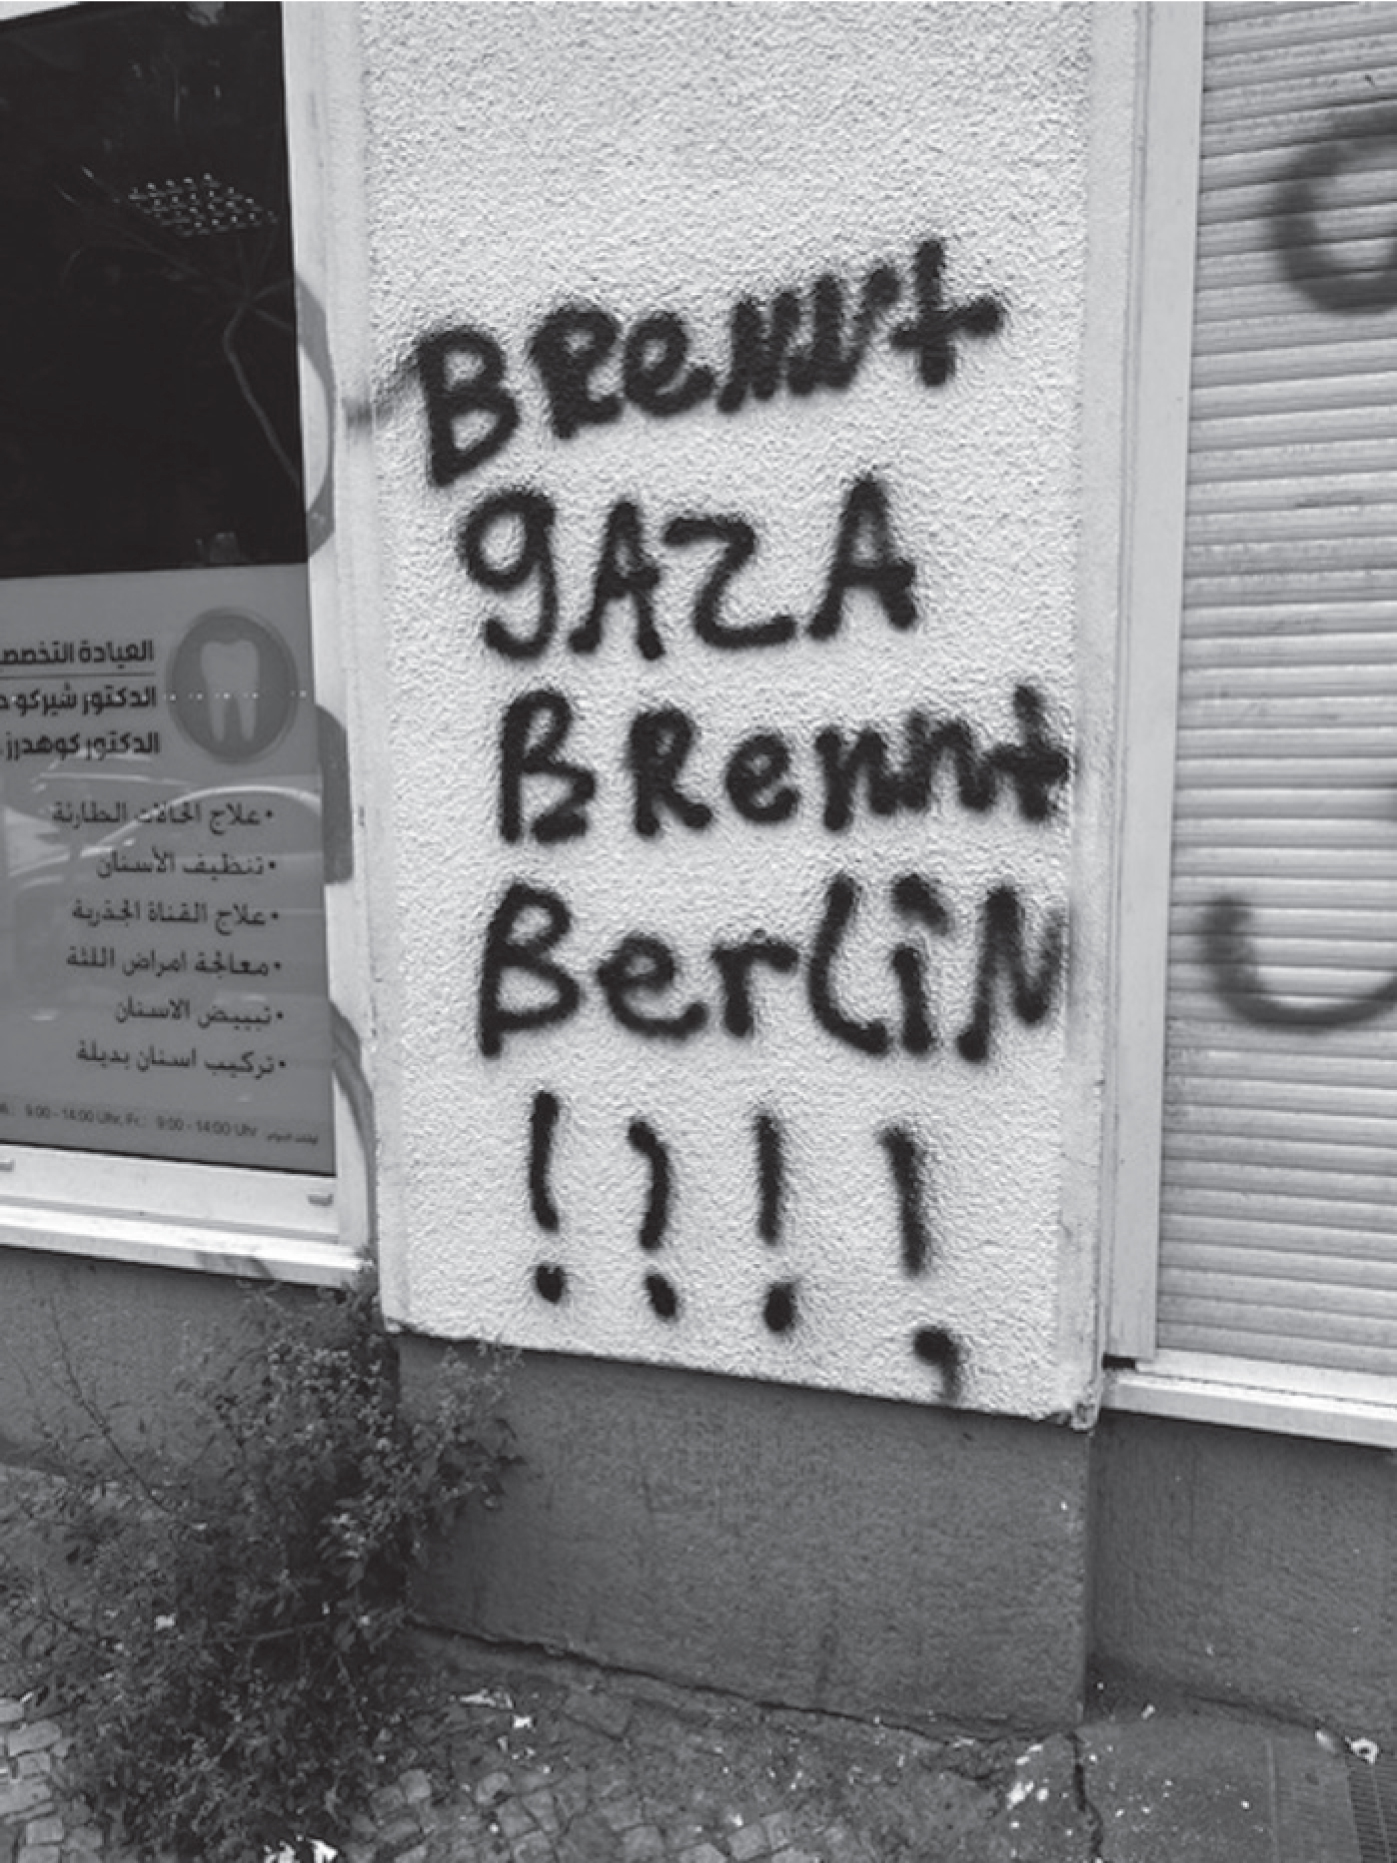 Brennt
gAZA
BRennt
BerLiN
!!!!
العيادة التخصصـ
الدكتور شيركو
الدكتور كوهدرز
•علاج الحالات الطارئة
•تنظيف الأسنان
•علاج القناة الجذرية
•معالجة امراض اللثة
•تبييض الاسنان
•تركيب اسنان بديلة
9:00 - 14:00 Uhr, Fr.: 9:00 - 14:00 Uhr